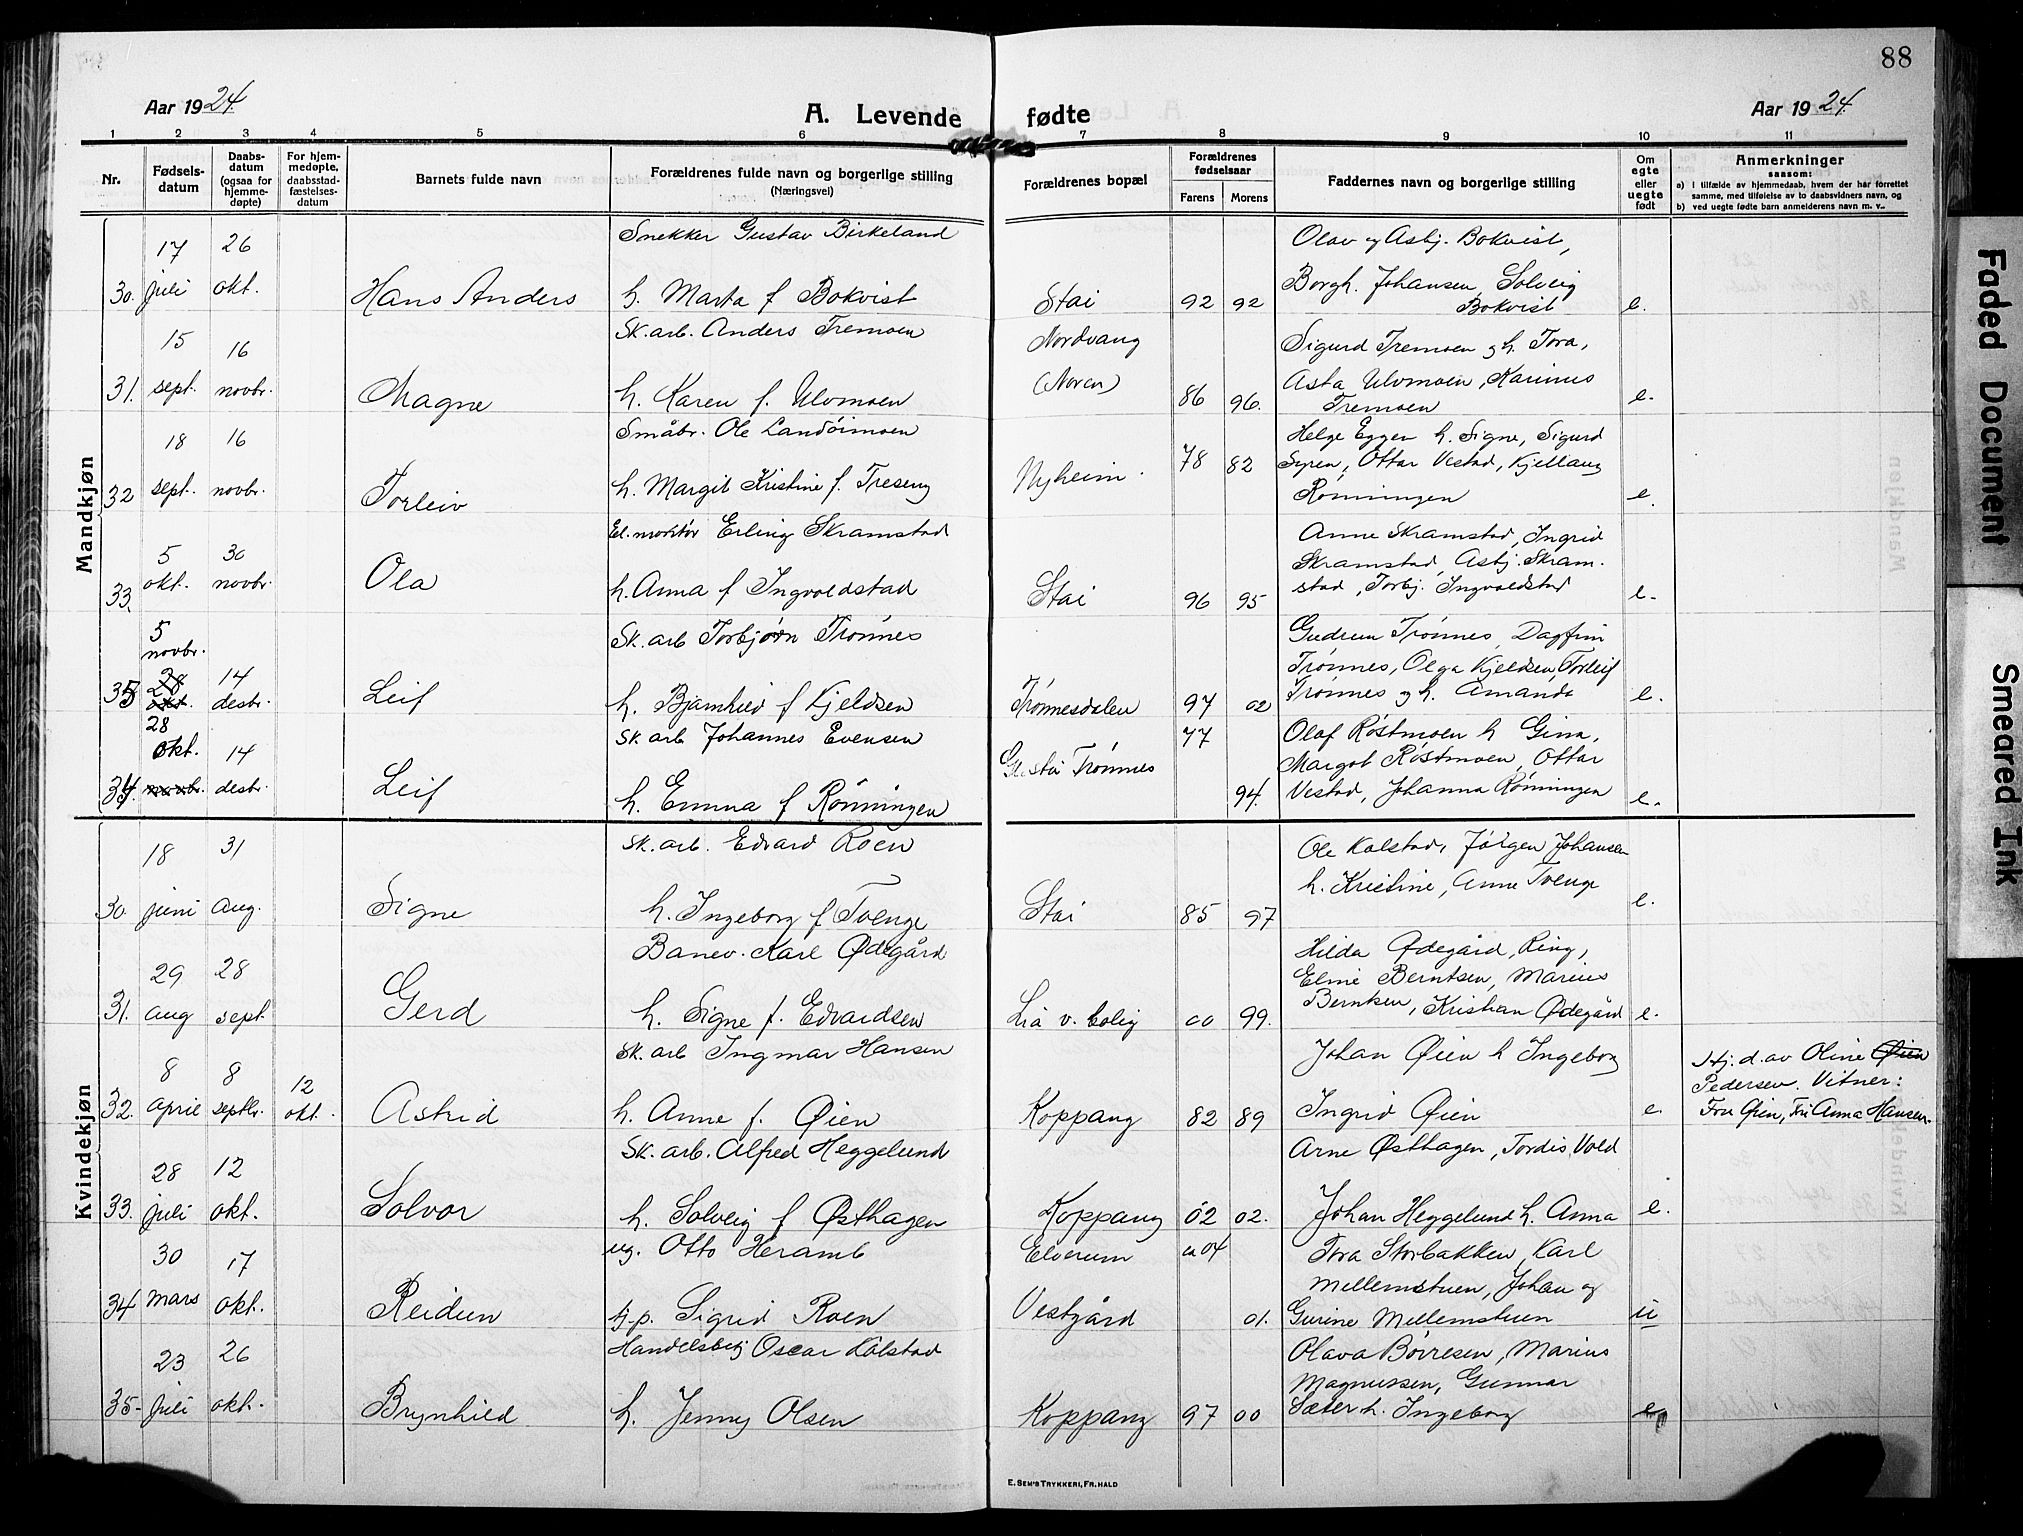 88
Aar 1924.
A. Levende fødte
Aar 1924.
1 2 3 4 5 6 7 8 9 10 11
Nr.
Fødsels-
datum
Daabs-
datum
(ogsaa for
hjemme-
døpte)
For hjem-
medøpte,
daabsstad-
fæstelses-
datum
Barnets fulde navn
Forældrenes fulde navn og borgerlige stilling
(Næringsvei)
Forældrenes bopæl
Forældrenes
fødselsaar
Farens Morens
Faddernes navn og borgerlige stilling
Om
egte
eller
uegte
født
Anmerkninger
saasom:
a) i tilfælde av hjemmedaab, hvem der har forrettet
samme, med tilføielse av to daabsvidners navn, og
b) ved uegte fødte barn anmelderens navn m. v..
Mandkjøn
Snekker Gustav Birkeland
17 26 Olav og Asbj. Bokvist,
30. juli okt. Hans Anders h. Marta f Bokvist Stai 92 92 Borgh. Johansen, Solveig
Bokvist e.
Sk. arb. Anders Tremoen
15 16 Nordvang Sigurd Tremoen og h. Tora,
31. sept. novbr. Magne h. Karen f. Ulvmoen (Noren) 86 96. Asta Ulvmoen, Karinus
Tremoen e.
Småbr. Ole Landöimoen
18 16 Helge Eggen h. Signe, Sigurd
32 sept. novbr. Torleiv h. Margit Kristine f. Treseng Nyheim. 78 82 Syren, Ottar Vestad, Kjellaug
Rønningen e.
El. montör Erling Skramstad
5 30 Anne Skramstad, Ingrid
Skramstad, Asbj. Skram-
33. okt. novbr. Ola h. Anna f Ingvoldstad Stai 96 95 stad, Torbj. Ingvoldstad e.
5 Sk. arb Torbjørn Trønnes Gudrun Trønnes, Dagfin
novbr. Trønnes, Olga Kjeldsen, Torleif
35 28 okt. 14 desbr. Leif h. Bjarnhild f Kjeldsen Trønnesdalen 97 02 Trønnes og h. Amanda e.
28 Sk. arb Johannes Evensen 77 Olaf Røstmoen h Gina,
okt. 14 Trønnes Margot Røstmoen, Ottar
34. novbr. desbr. Leif h. Emma f Rønningen 94. Vestad, Johanna Rønningen e.
Kvindekjøn
Sk. arb. Edvard Roen
18 31 Ole Kolstad, Jørgen Johansen
h. Kristine, Anne Tvenge
30. juni aug. Signe h. Ingeborg f Tvenge Stai 85 97 e.
Banev. Karl Ødegård Hilda Ødegård, Ring,
29 28 Eline Berntsen, Marius
31. aug sept. Gerd h. Signe f. Edvardsen Lia v. bolig 00 99. Berntsen, Kristian Ødegård e.
Sk. arb Ingmar Hansen Johan Øien h Ingeborg Hj. d. av Oline Øien
8 8 12 Pedersen. Vitner:
32. april septbr. okt. Astrid h. Anne f. Øien Koppang 82 89 Ingrid Øien e. Fru Øien, Fru Anna Hansen.
Sk. arb. Alfred Heggelund Arne Østhagen, Tordis Vold
28 12
33. juli okt. Solvor h. Solveig f Østhagen Koppang 02 02. Johan Heggelund h. Anna e.
ug. Otto Heramb Elverum ca 04 Tora Storbakken, Karl
30 17 Mellemstuen, Johan og
34 mars okt. Reidun Sigrid Roen Vestgård 01. Gurine Mellemstuen u
Handelsbetj Oscar Kolstad Olava Børresen, Marius
23 26 Magnussen, Gunnar
35- juli okt. Brynhild h. Jenny Olsen Koppang 97 00 Sæter h. Ingeborg e
E. SEM'S TRYKKERI, FR.HALD
Faded Document
Smeared Ink